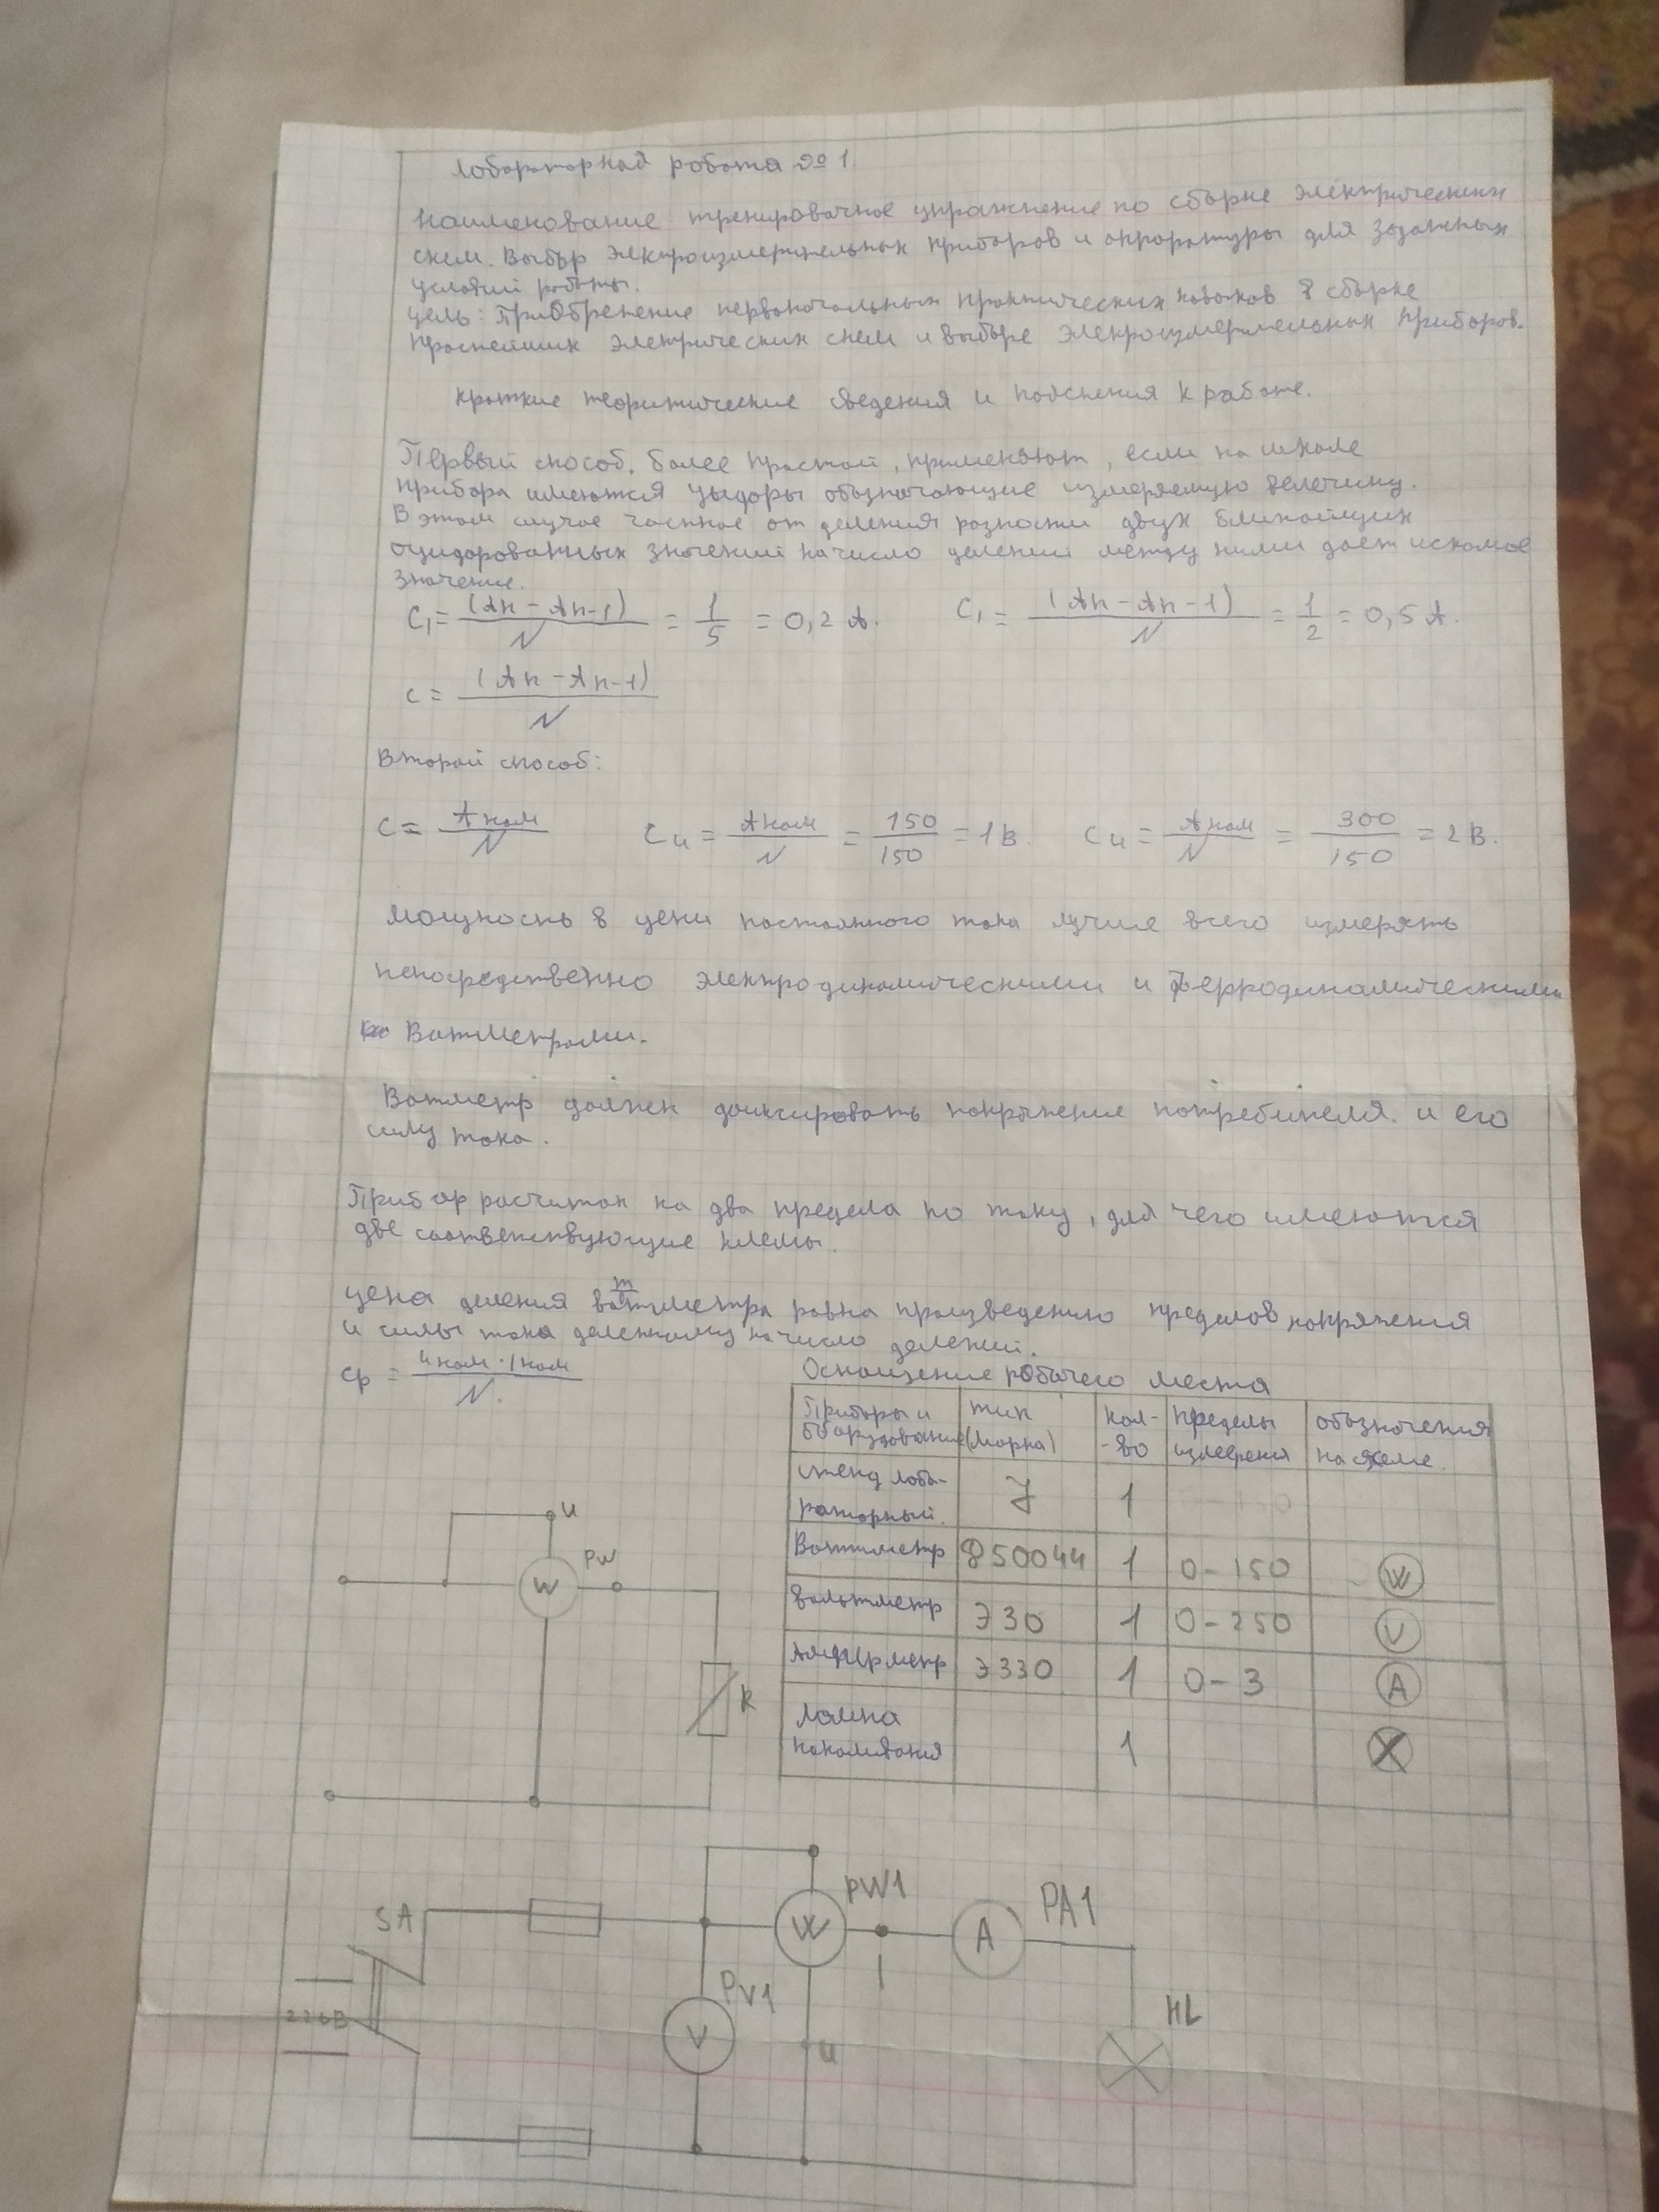 Лабораторная работа № 1.
Наименование тренировочное упражнение по сборке электрических
схем. Выбор электроизмерительных приборов и аппаратуры для заданных
условий работы.
цель: Приобретение первоначальных практических навыков в сборке
простейших электрических схем и выборе электроизмерительных приборов.
краткие теоритические сведения и пояснения к работе.
Первый способ, более простой, применяют, если на шкале
прибора имеются цыфры обозначающие измеряемую величину.
В этом случае частное от деления разности двух ближайших
оцифрованных значений на число делений между ними дает искомое
значение.
C₁ = (Aн - Aн-1) / N = 1/5 = 0,2 A. C₁ = (Aн - Aн - 1) / N = 1/2 = 0,5 A.
c = (Aн - Aн-1) / N
Второй способ:
c = Aном / N Cu = Aном / N = 150/150 = 1 В. Cu = Aном / N = 300/150 = 2 В.
Мощность в цепи постоянного тока лучше всего измерять
непосредственно электродинамическими и ферродинамическими
Ватметрами.
Ватметр должен фиксировать напряжение потребителя и его
силу тока.
Прибор расчитан на два предела по току, для чего имеются
две соответствующие клемы.
цена деления ваттметра равна произведению пределов напряжения
и силы тока деленному на число делений.
cp = Uном · Iном / N.
Оснащение рабочего места
Приборы и оборудование тип (марка) кол-во пределы измерения обозначения на схеме.
стенд лабораторный. 1
Ваттметр Ф50044 1 0-150 W
Вольтметр Э30 1 0-250 V
Амперметр Э330 1 0-3 A
Лампа накаливания 1
U
PW
W
R
PW1
SA
W
A
PA1
I
PV1
V
U
220В
HL